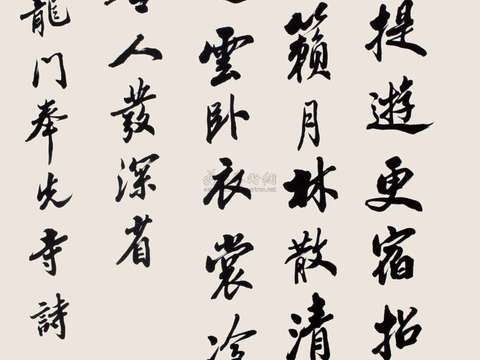 提遊更宿招
籟月林散清
雲卧衣裳冷
人發深省
龍門奉先寺詩